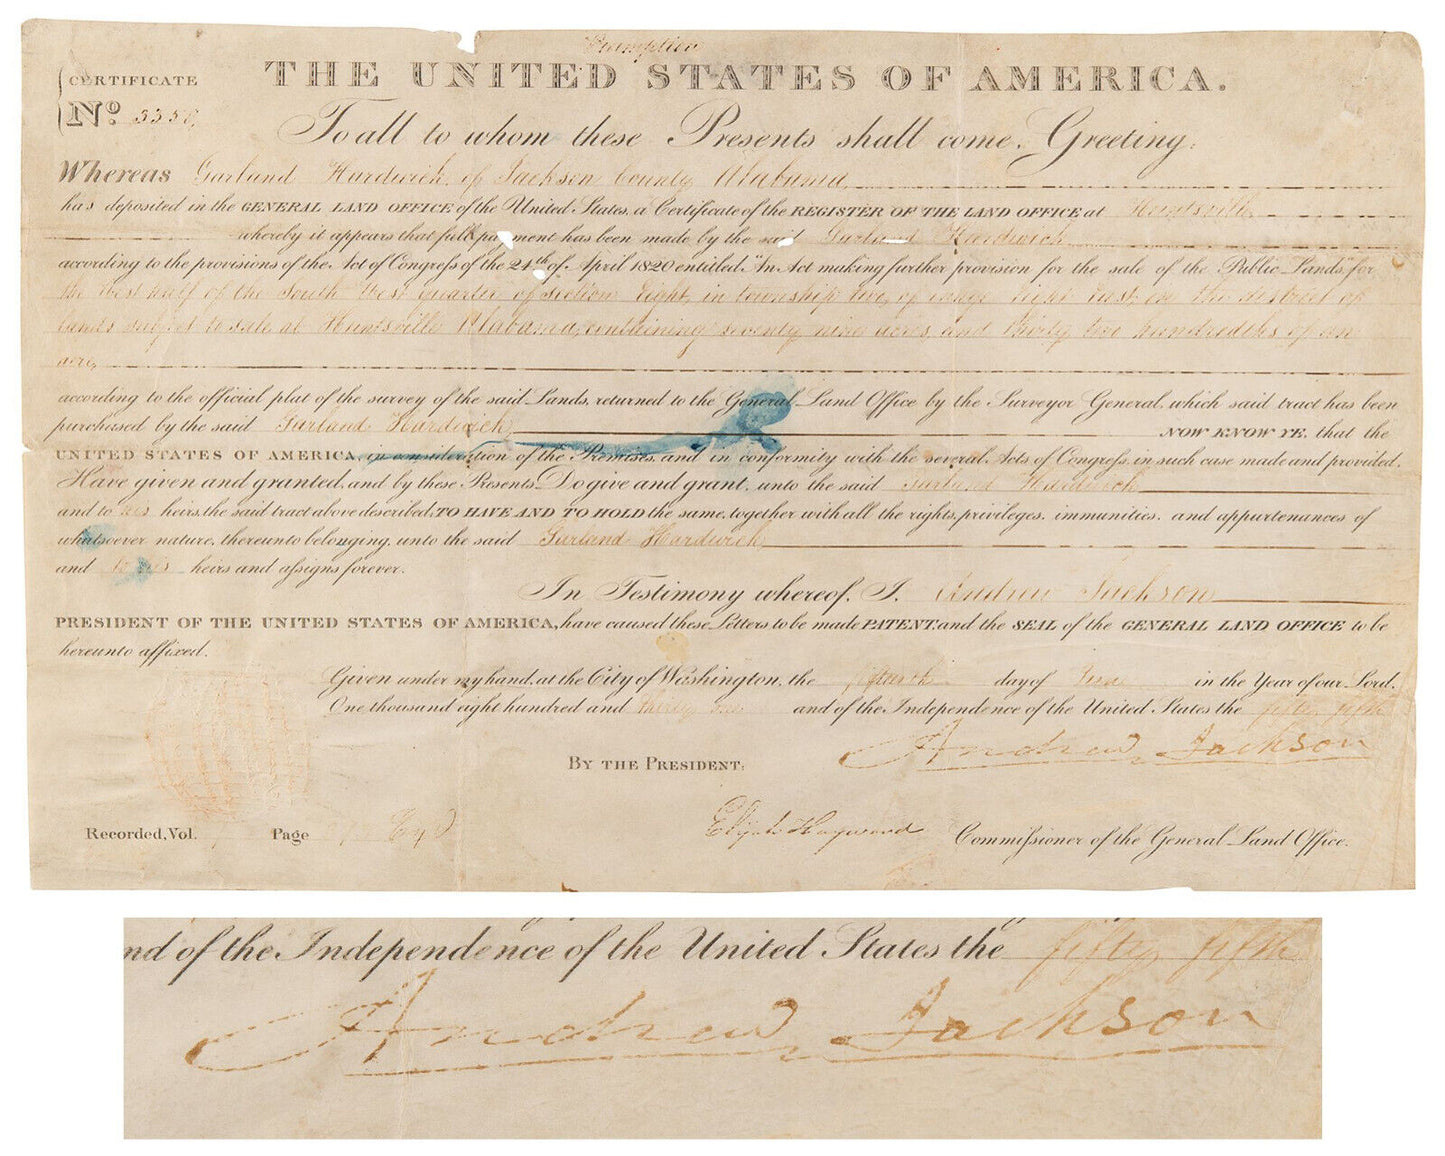 Preemption
CERTIFICATE
No.
THE UNITED STATES OF AMERICA.
To all to whom these Presents shall come, Greeting:
WHEREAS Garland Hardwick, of Jackson County Alabama
has deposited in the GENERAL LAND OFFICE of the United States, a Certificate of the REGISTER OF THE LAND OFFICE at Huntsville
whereby it appears that full payment has been made by the said Garland Hardwick
according to the provisions of the Act of Congress of the 24th of April 1820 entitled "An Act making further provision for the sale of the Public Lands" for
the West half of the South West quarter of section Eight, in township five, of range Eight East, in the district of
lands subject to sale at Huntsville Alabama, containing seventy nine acres, and thirty two hundredths of an
acre,
according to the official plat of the survey of the said Lands, returned to the General Land Office by the Surveyor General, which said tract has been
purchased by the said Garland Hardwick NOW KNOW YE, that the
UNITED STATES OF AMERICA, in consideration of the Premises, and in conformity with the several Acts of Congress, in such case made and provided,
Have given and granted, and by these Presents Do give and grant, unto the said Garland Hardwick
and to his heirs, the said tract above described, TO HAVE AND TO HOLD the same, together with all the rights, privileges, immunities, and appurtenances of
whatsoever nature, thereunto belonging, unto the said Garland Hardwick
and to his heirs and assigns forever.
In Testimony whereof, I, Andrew Jackson
PRESIDENT OF THE UNITED STATES OF AMERICA, have caused these Letters to be made PATENT, and the SEAL of the GENERAL LAND OFFICE to be
hereunto affixed.
Given under my hand, at the City of Washington, the fifteenth day of June in the Year of our Lord,
One thousand eight hundred and thirty one and of the Independence of the United States the fifty fifth
Andrew Jackson
BY THE PRESIDENT:
Elijah Hayward Commissioner of the General Land Office.
Recorded, Vol. Page
nd of the Independence of the United States the fifty fifth
Andrew Jackson